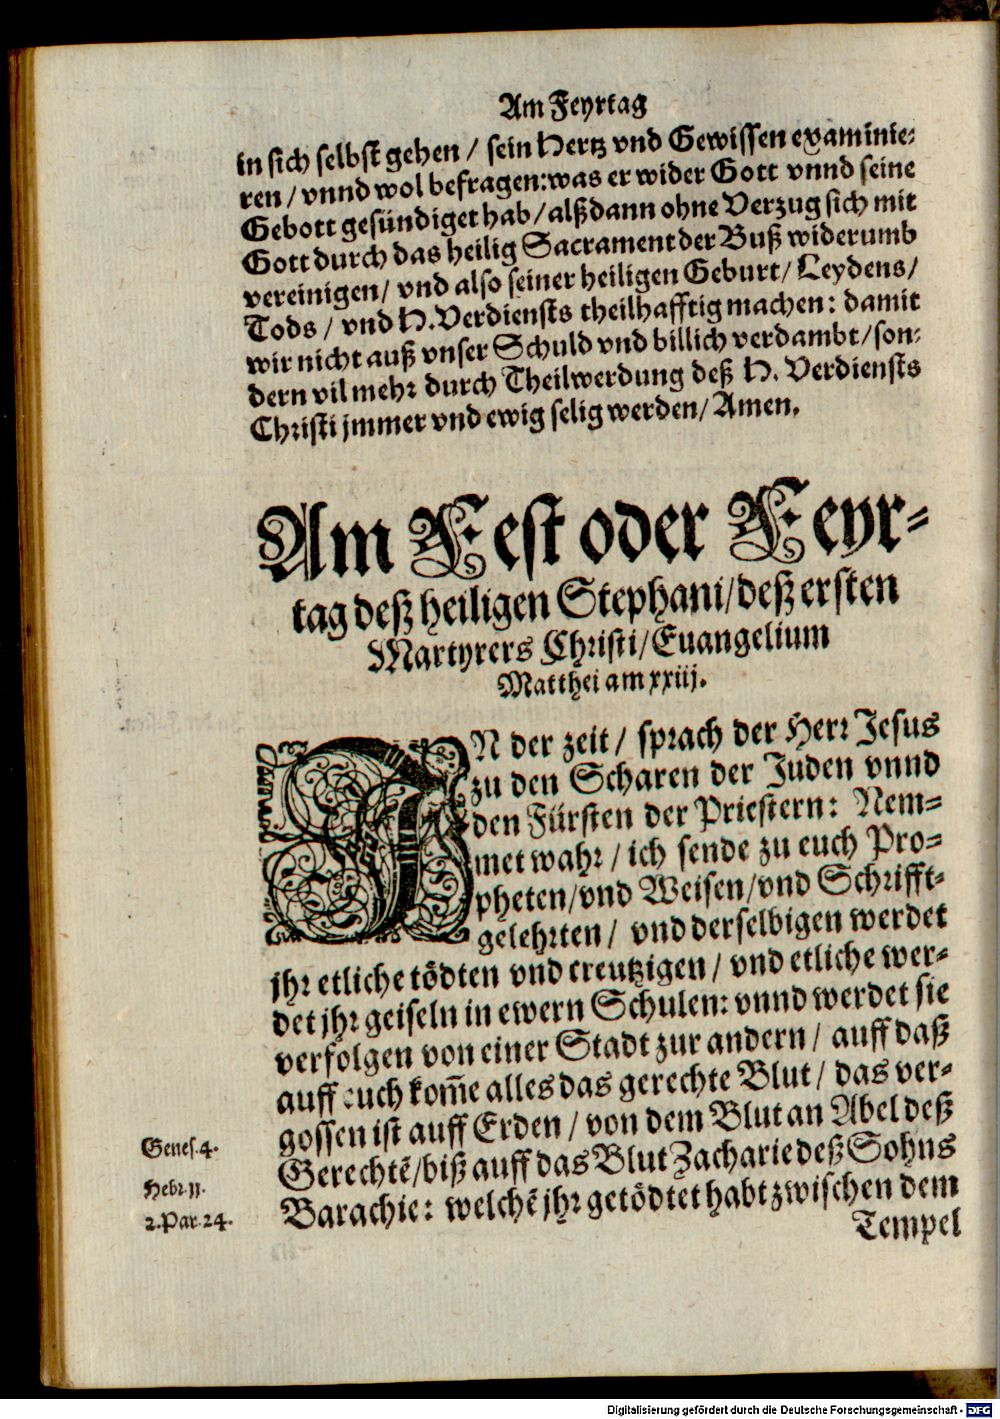 Am Feyrtag
in sich selbst gehen / sein Hertz vnd Gewissen examinie⸗
ren / vnnd wol befragen: was er wider Gott vnnd seine
Gebott gesündiget hab / alßdann ohne Verzug sich mit
Gott durch das heilig Sacrament der Buß widerumb
vereinigen / vnd also seiner heiligen Geburt / Leydens /
Tods / vnd H. Verdiensts theilhafftig machen: damit
wir nicht auß vnser Schuld vnd billich verdambt / son⸗
dern vil mehr durch Theilwerdung deß H. Verdiensts
Christi jmmer vnd ewig selig werden / Amen.
Am Fest oder Feyr⸗
tag deß heiligen Stephani / deß ersten
Martyrers Christi / Euangelium
Matthei am xxiij.
IN der zeit / sprach der Herr Jesus
zu den Scharen der Juden vnnd
den Fürsten der Priestern: Nem⸗
met wahr / ich sende zu euch Pro⸗
pheten / vnd Weisen / vnd Schrifft⸗
gelehrten / vnd derselbigen werdet
jhr etliche tödten vnd creutzigen / vnd etliche wer⸗
det jhr geiseln in ewern Schulen: vnnd werdet sie
verfolgen von einer Stadt zur andern / auff daß
auff euch kom̃e alles das gerechte Blut / das ver⸗
gossen ist auff Erden / von dem Blut an Abel deß
Gerechtẽ / biß auff das Blut Zacharie deß Sohns
Barachie: welchẽ jhr getödtet habt zwischen dem
Tempel
Genes. 4.
Hebr. 11.
2. Par. 24.
Digitalisierung gefördert durch die Deutsche Forschungsgemeinschaft - DFG